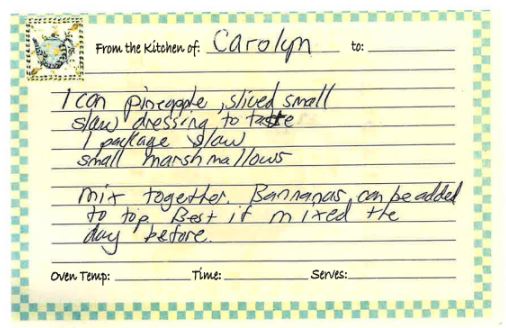 From the Kitchen of: Carolyn to:
1 can pineapple, sliced small
slaw dressing to taste
1 package slaw
small marshmallows
mix together. Bannanas can be added
to top. Best if mixed the
day before.
Oven Temp: Time: Serves: